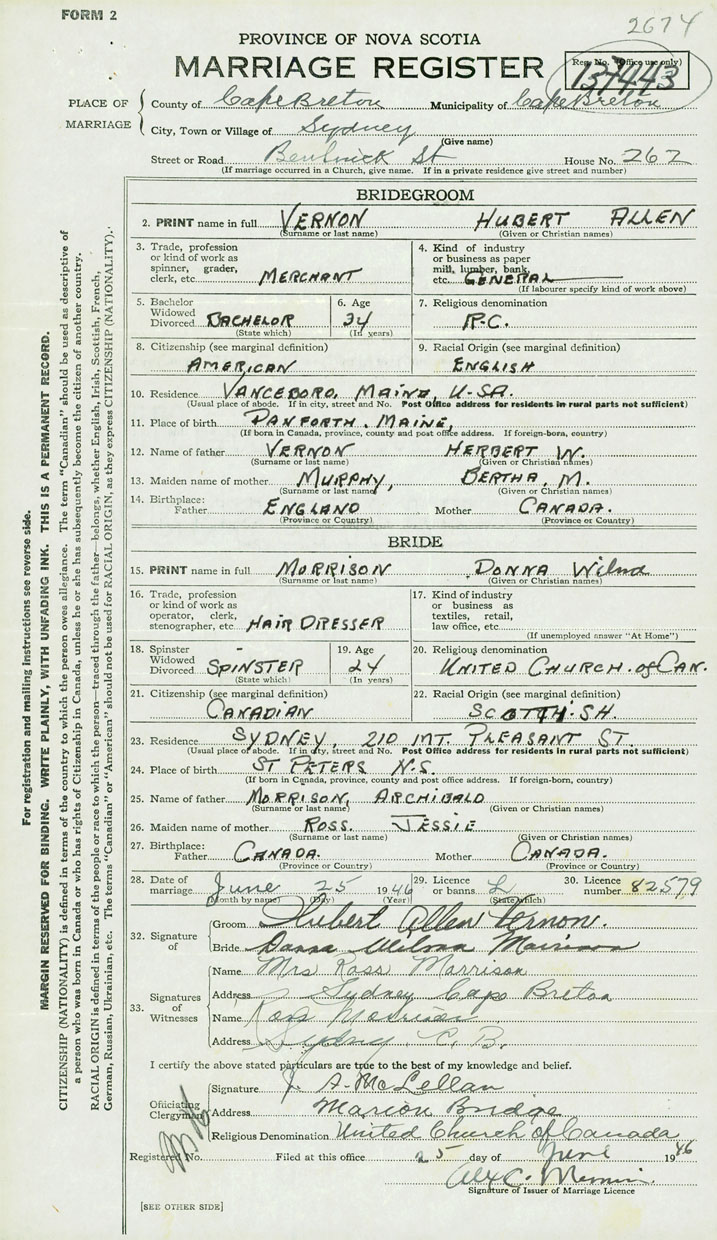 FORM 2
2674
PROVINCE OF NOVA SCOTIA
MARRIAGE REGISTER
Reg. No. (Office use only)
PLACE OF MARRIAGE
County of Cape Breton Municipality of Cape Breton
City, Town or Village of Sydney
(Give name)
Street or Road Bentinck St House No. 262
(If marriage occurred in a Church, give name. If in a private residence give street and number)
BRIDEGROOM
2. PRINT name in full VERNON HUBERT ALLEN
(Surname or last name) (Given or Christian names)
3. Trade, profession or kind of work as spinner, grader, clerk, etc. MERCHANT
4. Kind of industry or business as paper mill, lumber, bank, etc. GENERAL
(If labourer specify kind of work above)
5. Bachelor Widowed Divorced BACHELOR
(State which)
6. Age 34
(In years)
7. Religious denomination
R.C.
8. Citizenship (see marginal definition)
AMERICAN
9. Racial Origin (see marginal definition)
ENGLISH
10. Residence VANCEBORO, MAINE, U-SA.
(Usual place of abode. If in city, street and No. Post Office address for residents in rural parts not sufficient)
11. Place of birth DANFORTH. MAINE,
(If born in Canada, province, county and post office address. If foreign-born, country)
12. Name of father VERNON HERBERT W.
(Surname or last name) (Given or Christian names)
13. Maiden name of mother MURPHY, BERTHA, M.
(Surname or last name) (Given or Christian names)
14. Birthplace: Father ENGLAND Mother CANADA.
(Province or Country) (Province or Country)
BRIDE
15. PRINT name in full MORRISON DONNA Wilma
(Surname or last name) (Given or Christian names)
16. Trade, profession or kind of work as operator, clerk, stenographer, etc. HAIR DRESSER
17. Kind of industry or business as textiles, retail, law office, etc.
(If unemployed answer "At Home")
18. Spinster Widowed Divorced SPINSTER
(State which)
19. Age 24
(In years)
20. Religious denomination
UNITED CHURCH. of CAN.
21. Citizenship (see marginal definition)
CANADIAN
22. Racial Origin (see marginal definition)
23. Residence SYDNEY, 210 MT. PLEASANT ST.
(Usual place of abode. If in city, street and No. Post Office address for residents in rural parts not sufficient)
24. Place of birth ST PETERS N.S.
(If born in Canada, province, county and post office address. If foreign-born, country)
25. Name of father MORRISON, ARCHIBALD
(Surname or last name) (Given or Christian names)
26. Maiden name of mother ROSS. JESSIE
(Surname or last name) (Given or Christian names)
27. Birthplace: Father CANADA. Mother CANADA.
(Province or Country) (Province or Country)
28. Date of marriage June 25 1946
(Month by name) (Day) (Year)
29. Licence or banns L
(State which)
30. Licence number 82579
32. Signature of
Groom Hubert Allen Vernon.
Bride Donna Wilma Morrison
33. Signatures of Witnesses
Name Mrs Ross Morrison
Address Sydney Cape Breton
Name Ross Morrison
Address Sydney C. B.
I certify the above stated particulars are true to the best of my knowledge and belief.
Officiating Clergyman
Signature J. A. McLellan
Address Marion Bridge
Religious Denomination United Church of Canada
Registered No. Filed at this office 25 day of June 1946
Alex C.
Signature of Issuer of Marriage Licence
[SEE OTHER SIDE]
For registration and mailing instructions see reverse side.
MARGIN RESERVED FOR BINDING. WRITE PLAINLY, WITH UNFADING INK. THIS IS A PERMANENT RECORD.
CITIZENSHIP (NATIONALITY) is defined in terms of the country to which the person owes allegiance. The term "Canadian" should be used as descriptive of
a person who was born in Canada or who has rights of Citizenship in Canada, unless he or she has subsequently become the citizen of another country.
RACIAL ORIGIN is defined in terms of the people or race to which the person—traced through the father—belongs, whether English, Irish, Scottish, French,
German, Russian, Ukrainian, etc. The terms "Canadian" or "American" should not be used for RACIAL ORIGIN, as they express CITIZENSHIP (NATIONALITY).